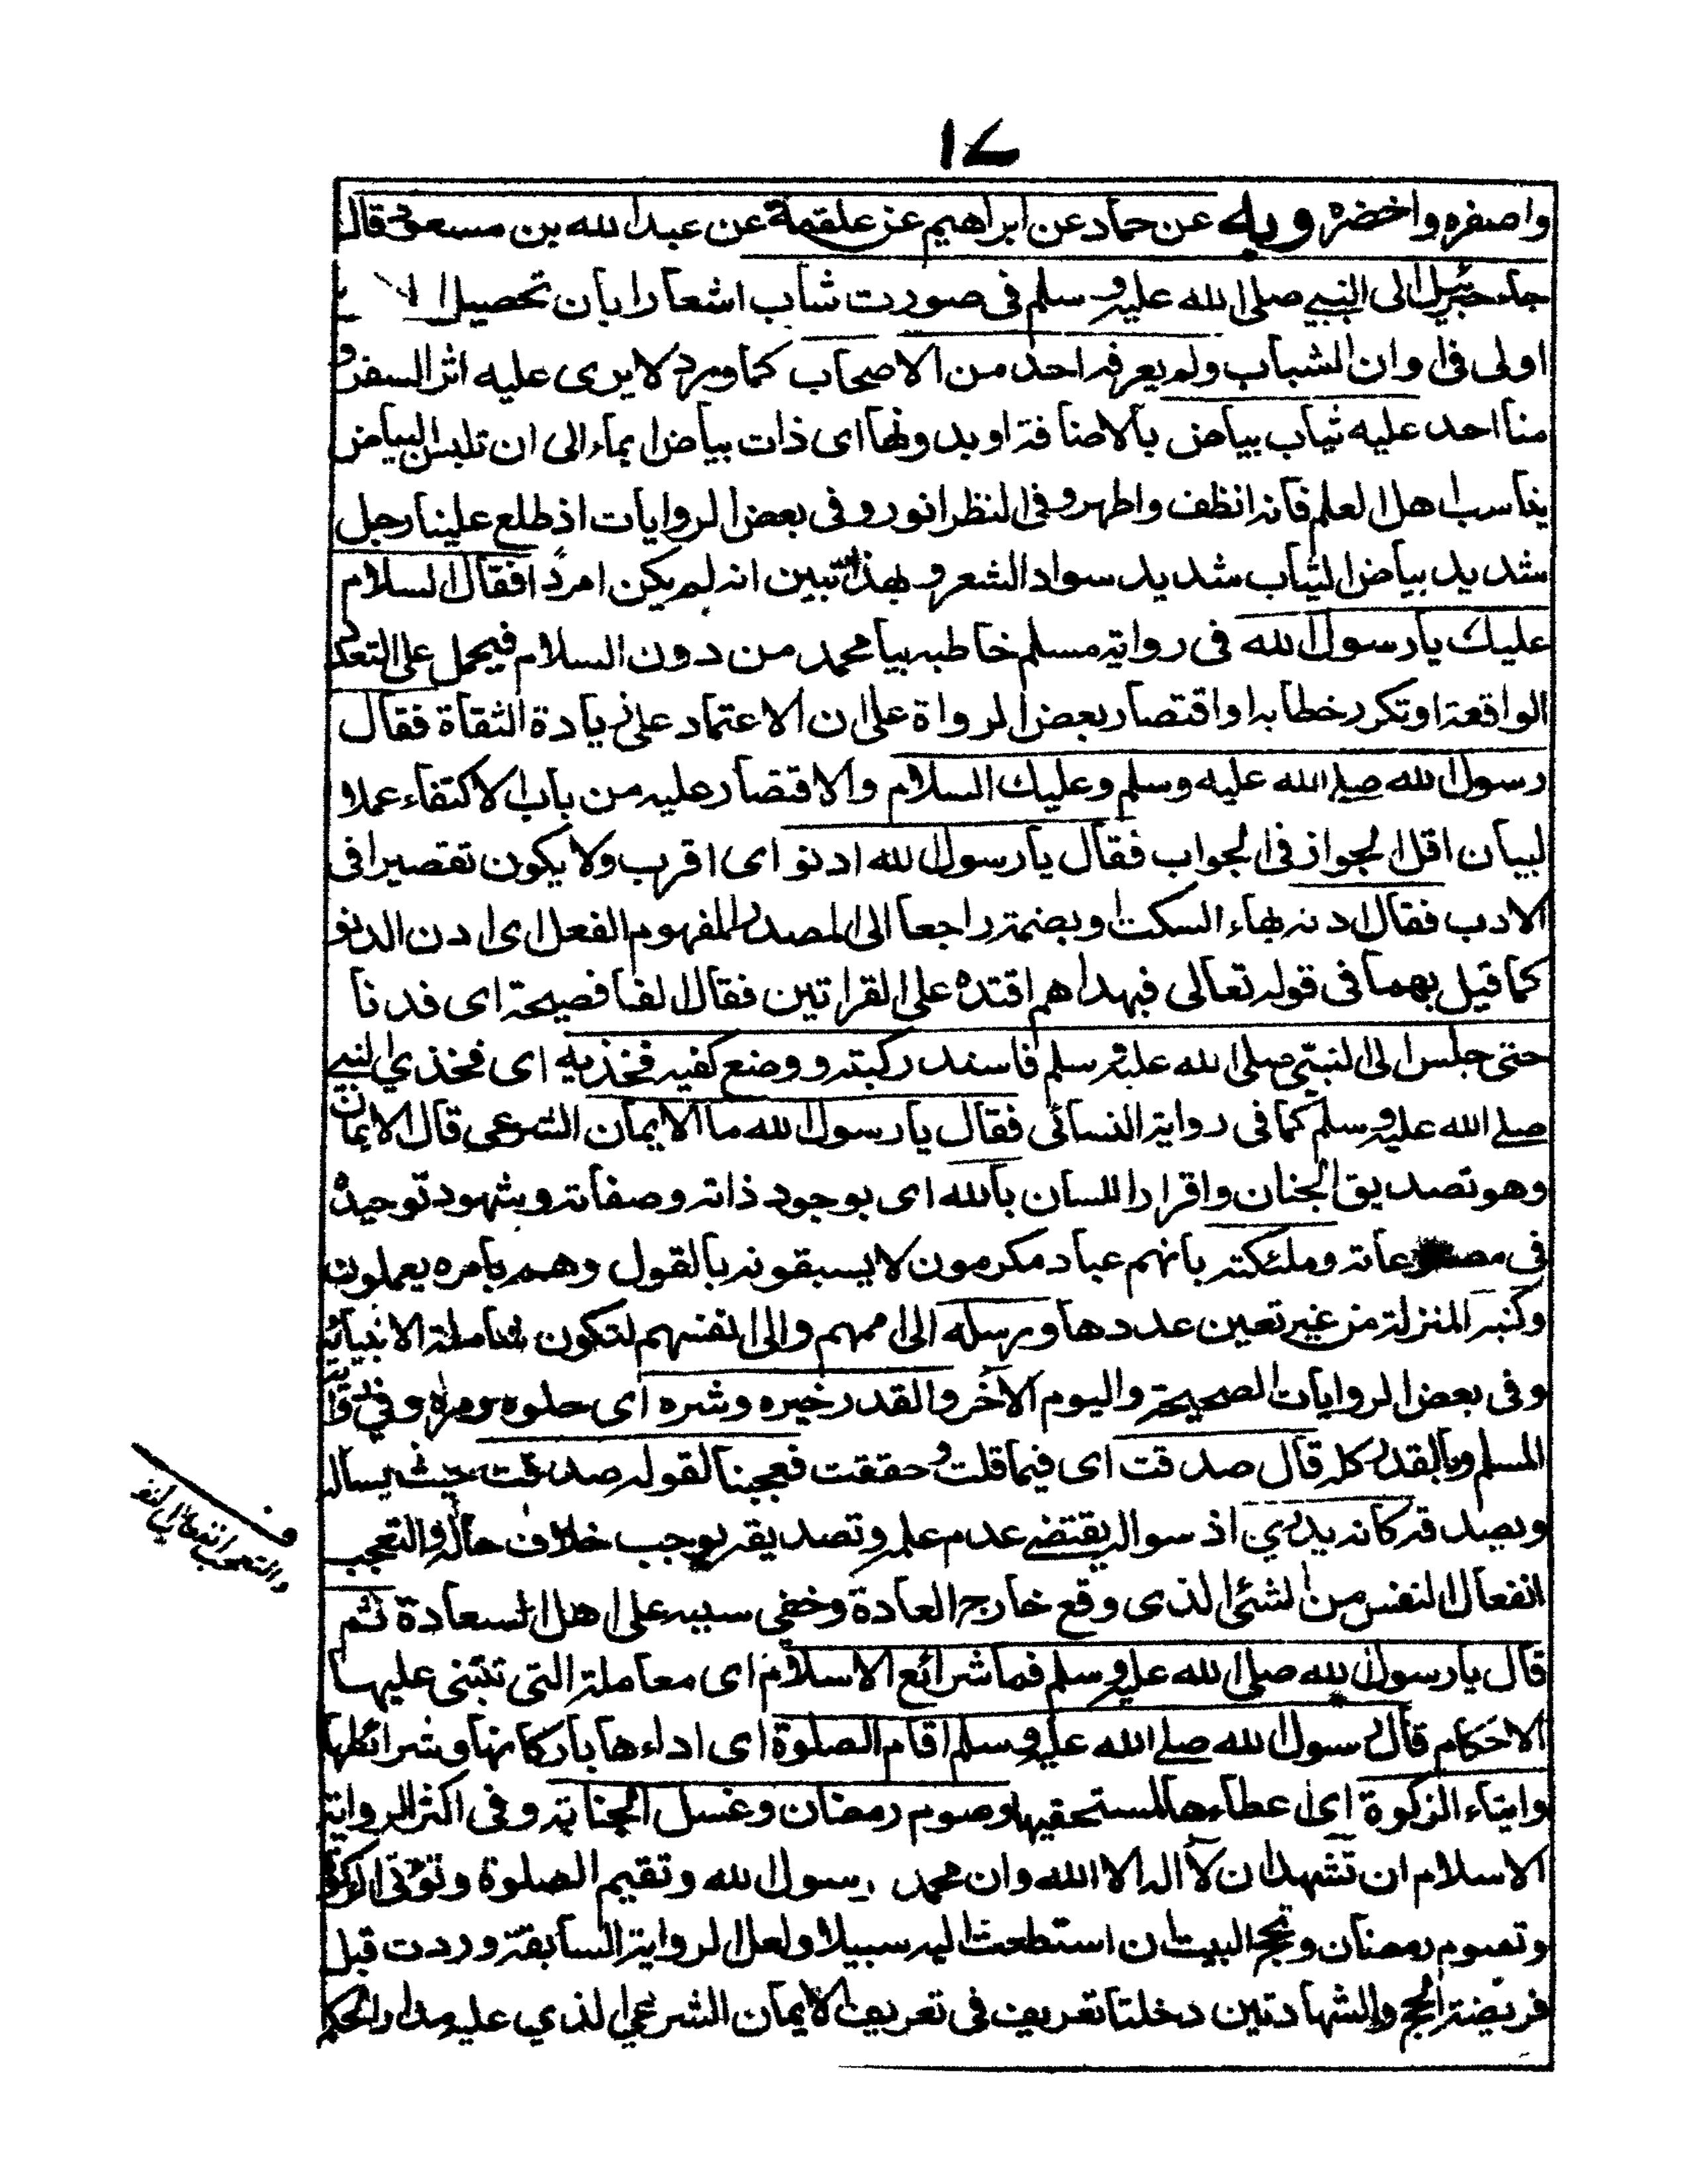 ١٤
واصفره واخضره وبه عن حماد عن ابراهيم عن علقمة عن عبد الله بن مسعود قال
جاء جبرئيل الى النبي صلى الله عليه وسلم فى صورت شاب اشعارا بان تحصيل
اولى فى اوان الشباب ولم يعرفه احد من الاصحاب كما ورد لا يرى عليه اثر السفر و
منا احد عليه ثياب بياض بالاضافة او بدونها اى ذات بياض ايماء الى ان تلبس البياض
يناسب اهل العلم فانه انظف واطهر وفى النظر انور وفى بعض الروايات اذ طلع علينا رجل
شديد بياض الثياب شديد سواد الشعر و بهذا تبين انه لم يكن امردا فقال السلام
عليك يا رسول الله فى رواية مسلم خاطبه بيا محمد من دون السلام فيحمل على التعدد
الواقعة او تكرر خطابه او اقتصار بعض الرواة على ان الاعتماد على زيادة الثقاة فقال
رسول الله صلى الله عليه وسلم وعليك السلام والاقتصار عليه من باب الاكتفاء عملا
لبيان اقل الجواز فى الجواب فقال يا رسول الله ادنو اى اقرب ولا يكون تقصيرا فى
الادب فقال ادنه بهاء السكت او بضمة راجعا الى المصدر المفهوم الفعل اى ادن الدنو
كما قيل بهما فى قوله تعالى فبهداهم اقتده على القراتين فقال الفا فصيحة اى فدنا
حتى جلس الى النبي صلى الله عليه وسلم فاسند ركبته ووضع كفيه فخذيه اى فخذي النبي
صلى الله عليه وسلم كما فى رواية النسائى فقال يا رسول الله ما الايمان الشرعى قال الايمان
وهو تصديق الجنان واقرار اللسان بالله اى بوجود ذاته وصفاته وشهود توحيده
فى مصنوعاته وملئكته بانهم عباد مكرمون لا يسبقونه بالقول وهم بامره يعملون
وكتبه المنزلة من غير تعين عددها ورسله الى اممهم والى انفسهم لتكون شاملة الانبيائه
وفى بعض الروايات الصحيحة واليوم الآخر والقدر خيره وشره اى حلوه ومره وفي رواية
المسلم وبالقدر كله قال صدقت اى فيما قلت وحققت فعجبنا لقوله صدقت حيث يساله
ويصدقه كانه يدري اذ سواله يقتضى عدم علمه وتصديقه يوجب خلاف حاله والتعجب
انفعال النفس من الشئ الذى وقع خارج العادة وخفى سببه على اهل السعادة ثم
قال يا رسول الله صلى الله عليه وسلم فما شرائع الاسلام اى معاملة التى تبتنى عليها
الاحكام قال رسول الله صلى الله عليه وسلم اقام الصلوة اى اداءها باركانها وشرائطها
وايتاء الزكوة اى اعطاءها لمستحقيها وصوم رمضان وغسل الجنابة وفى اكثر الرواية
الاسلام ان تشهد ان لا اله الا الله وان محمد رسول الله وتقيم الصلوة وتؤتى الزكوة
وتصوم رمضان وتحج البيت ان استطعت اليه سبيلا ولعل الرواية السابقة وردت قبل
فريضة الحج والشهادتين دخلتا تعريف فى تعريف الايمان الشرعى الذي عليه مدار الحكم
والتعجب انفعال النفس